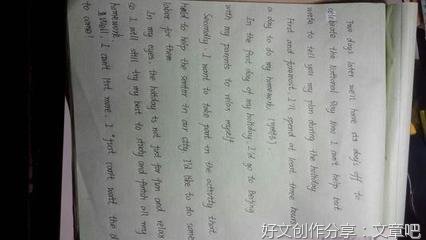 Two days later we'll have six days off to
celebrate the National Day. Now I can't help but
write to tell you my plan during the holiday.
First and foremost, I'll spend at least three hours
a day to do my homework.
In the first day of my holiday, I'll go to Beijing
with my parents to relax myself.
Secondly, I want to take part in the activity that
held to help the center in our city. I'd like to do some
labor for them.
In my eyes, the holiday is not just for fun and relax
I will still try my best to study and finish all my
homework.
Well, I can't list more. I just can't wait the
to come!
好文创作分享：文章吧